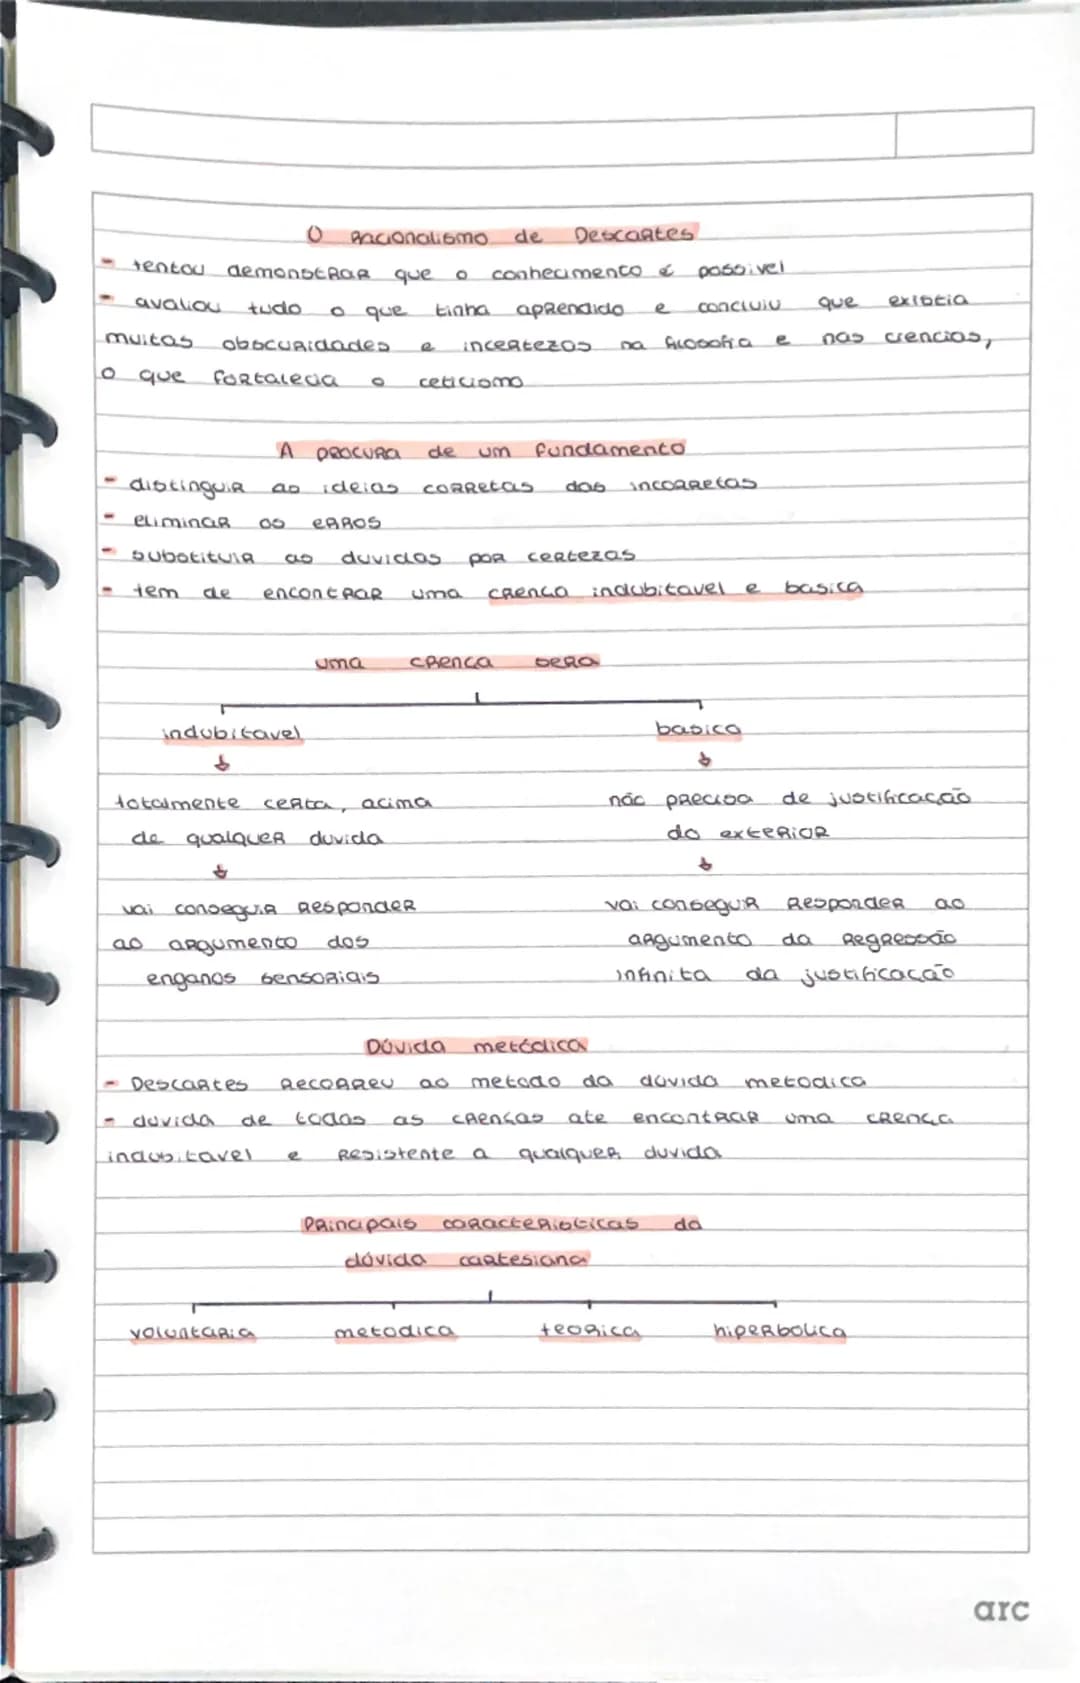 O Racionalismo de Descartes
- tentou demonstrar que o conhecimento é possivel
- avaliou tudo o que tinha aprendido e concluiu que existia
muitas obscuridades e incertezas na filosofia e nas ciencias,
o que fortalecia o ceticismo
A procura de um fundamento
- distinguir as ideias corretas das incorretas
- eliminar os erros
- substituir as duvidas por certezas
- tem de encontrar uma crença indubitavel e basica
uma crenca sera
indubitavel basica
totalmente certa, acima não precisa de justificação
de qualquer duvida do exterior
vai conseguir responder vai conseguir responder ao
ao argumento dos argumento da regressão
enganos sensoriais infinita da justificação
Dúvida metódica
- Descartes recorreu ao metodo da dúvida metodica
- duvida de todas as crenças ate encontrar uma crença
indubitavel e resistente a qualquer duvida
Principais caracteristicas da
dúvida cartesiana
voluntaria metodica teorica hiperbolica
arc